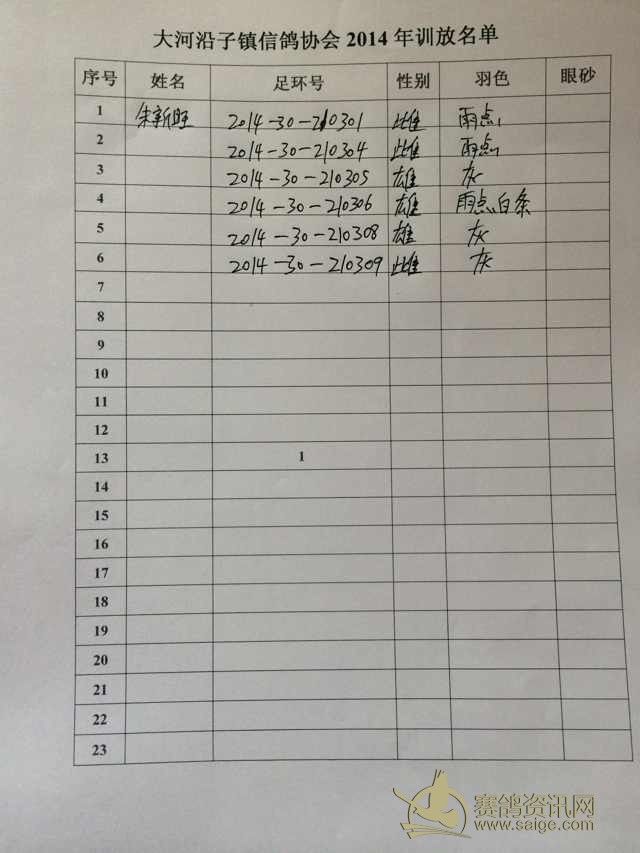 大河沿子镇信鸽协会 2014 年训放名单
序号 姓名 足环号 性别 羽色 眼砂
1 朱新旺 2014-30-210301 雌 雨点
2 2014-30-210304 雌 雨点
3 2014-30-210305 雄 灰
4 2014-30-210306 雄 雨点白条
5 2014-30-210308 雄 灰
6 2014-30-210309 雌 灰
7
8
9
10
11
12
13 1
14
15
16
17
18
19
20
21
22
23
赛鸽资讯网
www.saige.com